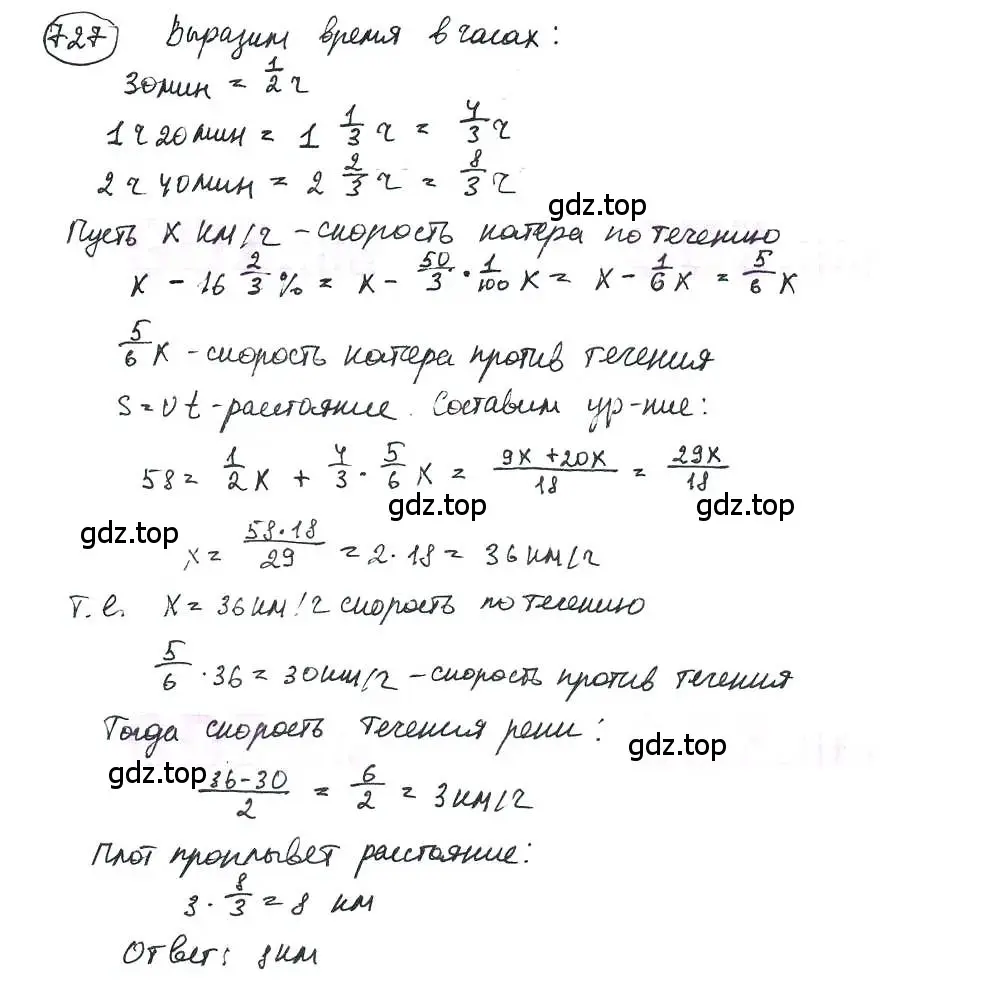 727 Выразим время в часах:
30 мин = 1/2 ч
1 ч 20 мин = 1 1/3 ч = 4/3 ч
2 ч 40 мин = 2 2/3 ч = 8/3 ч
gdz.top
Пусть x км/ч - скорость катера по течению
x - 16 2/3 % = x - 50/3 · 1/100 x = x - 1/6 x = 5/6 x
5/6 x - скорость катера против течения
S = υt - расстояние. Составим ур-ние:
58 = 1/2 x + 4/3 · 5/6 x = (9x + 20x)/18 = 29x/18
gdz.top gdz.top gdz.top
x = (58·18)/29 = 2·18 = 36 км/ч
т.е. x = 36 км/ч скорость по течению
5/6 · 36 = 30 км/ч - скорость против течения
Тогда скорость течения реки:
gdz.top
gdz.top
(36-30)/2 = 6/2 = 3 км/ч
Плот проплывет расстояние:
3 · 8/3 = 8 км
Ответ: 8 км